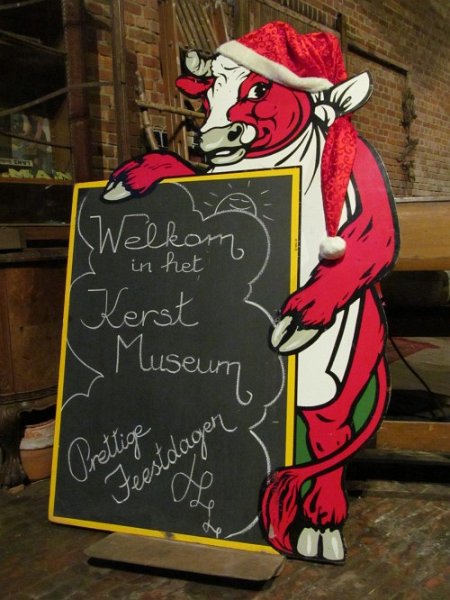 Welkom
in het
Kerst
Museum
Prettige
Feestdagen